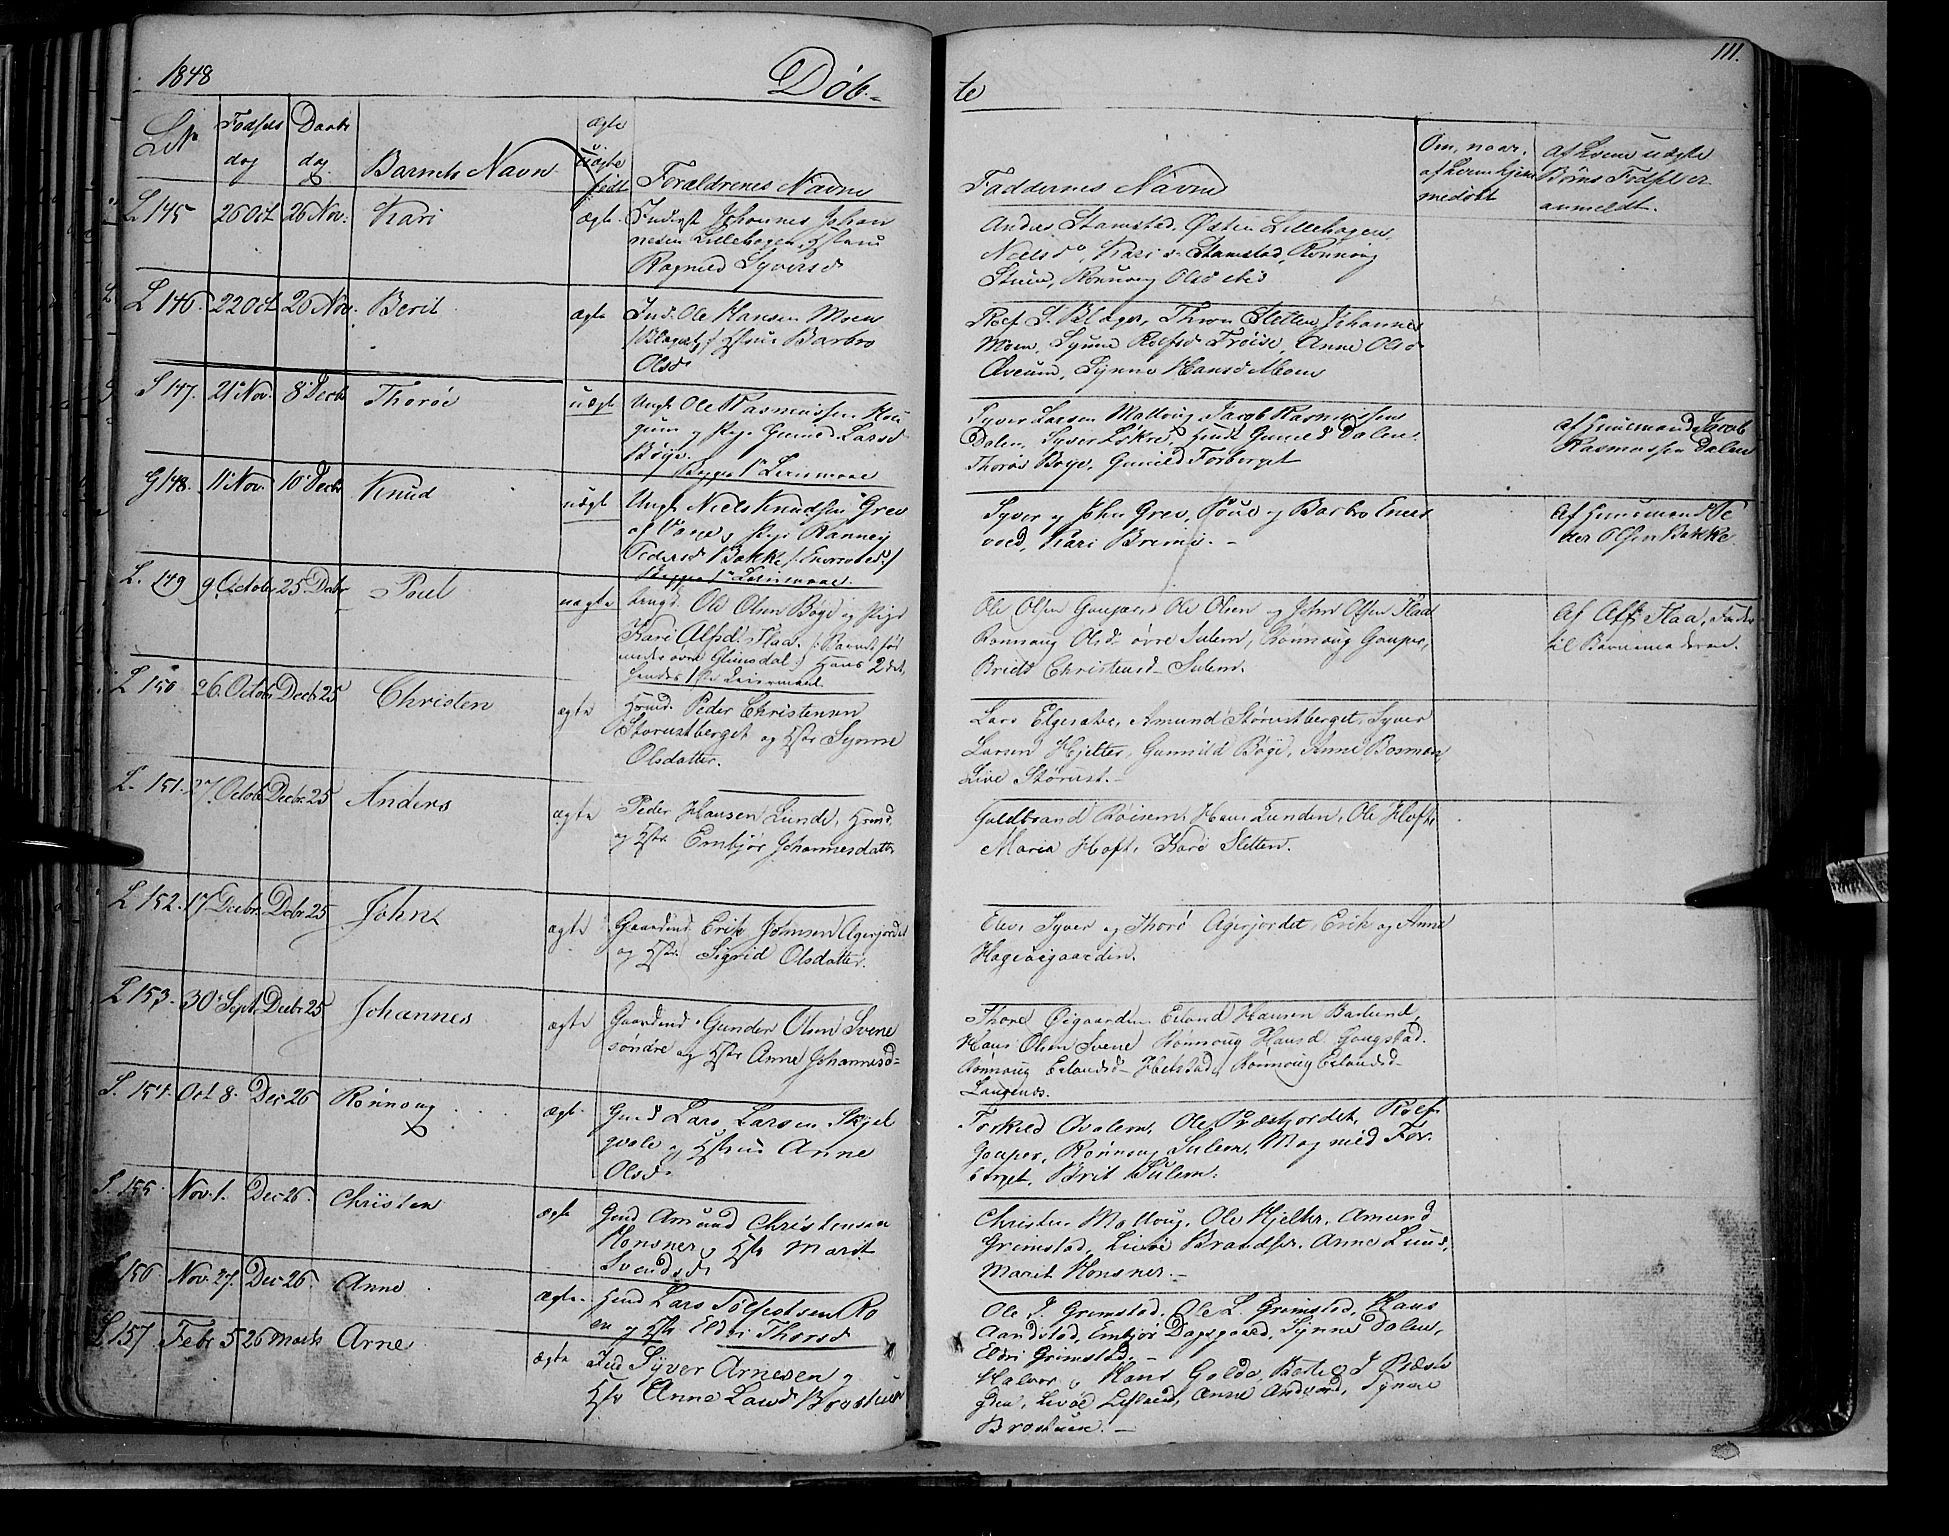 1848 Døb-
te 111.
L№ Fødsels dag Daabs dag Barnets Navn ægte u: uægte født Forældrenes Navne
Faddernes Navne Om, naar, af hvem hjemmedøbt af hvem uægte Børns Fødsler anmeldt.
L 145 26 Oct 26 Nov: Kari ægte. Inderst Johannes Johan
nesen Lillehagen, Hstrue
Ragnild Syversd
Anders Stamstad, Østen Lillehagen,
Kari Stamstad, Rønnoug
Rønnoug Olsd
L 146. 22 Oct 26 Nov. Berit ægte Ind. Ole Hansen Moen
Hstrue Barbro
Olsd.
Roef S. Blager, Thron Sletten, Johannes
Moen, Synne Roefsd Trøise, Anne Olsd
Synne Hansd Moen
S 147. 21 Nov. 8 Decbr Thorøe uægt Ungk Ole Rasmussen Hau
gum og Pige Gunild Larsd
Bøye.
Begges 1te Leiermaal
Syver Larsen Malloug, Jacob Rasmussen
Dalen, Syver Løkre, Gunild Dalen,
Thorøe Boye, Gunild Forberget
af Huusmand Jacob
Rasmussen Dalen
G 148. 11 Nov. 10 Decbr Knud uægt Ungk Niels Knudsen Grev
af Vang, Pige Ranney
Pedersd Bakke
Begges 1te Leiermaal.
Syver og John Grev, Poul og Barbro Eners
vold, Kari Bræmis. -
af Huusmand Pe
der Olsen Bakke
L. 149 9 October 25 Decbr Poul uægte Ungk. Ole Olsen Bøye og Pige
Kari Alfsd. Flaa. (: Barnet fød
under øvre Glimsdal:) Hans 2det,
hendes 1ste Leiermaal
Ole Olsen Ole Olsen og John Olsen Flaa
Rønnoug Olsd. øvre Sulem, Rønnoug Gouper,
Bridt Christensd. Sulem.
Af Alf Flaa, Fader
til Barnemoderen.
L 150 26. October Decbr 25 Christen ægte Hmd. Peder Christensen
Storustberget og Hstr Synne
Olsdatter.
Lars Elgesatre, Amund Størustberget, Syver
Larsen Hjelter, Gunnild Bøye, Anne Bosmoen,
Live Størust. -
L. 151. 27. October Decbr. 25 Anders ægte Peder Hansen Lunde, Hmd
og Hstr. Embjør Johannesdatter
Guldbrand Røisem, Hans Lunden, Ole Hoft,
Maria Hoft, Kari Sletten.
L 152. 17 Decbr. Decbr. 25 John ægte Gaardmd. Erik Johnsen Agerjordet
og Hstr. Sigrid Olsdatter.
Elev: Syver og Thorø Agerjordet, Erik og Anne
Hageøigaarden.
L 153. 30 Sept. Decbr 25 Johannes ægte Gaardmd. Gunder Olsen Svene
søndre og Hstr Anne Johannesd-
Thore Øigaarden Erland Hansen Barlund,
Hans Olsen Svene Rønnoug Hansd. Gougstad.
Rønnoug Erlandsd- Helstad, Rønnoug Erlandsd-
Langenæs.
S. 154. Oct 8. Dec 26 Rønnoug ægte. Gmd Lars Larsen Skjel
qvale og Hstrue Anne
Olsd.
Torkild Qvalem, Ole Præstjordet, Roef
Gouper, Rønnoug Sulem, Magnild For.
berget, Brit Sulem.
S. 155. Nov. 1. Dec 26. Christen ægte Gmd Amund Christensen
Konsner og Hstr Marit
Svendsd.
Christen Malloug, Ole Hjelter, Amund
Grimstad, Livøe Brandser, Anne Lund,
Marit Konsner. -
156 Nov. 27. Dec 26. Anne ægte. Hmd Lars Tolfestsen Ro
en og Hstr Eldri Thorsd
Ole J. Grimstad, Ole L. Grimstad, Hans
Aandstad, Embjør Dagsgaard, Synne Dalen,
Eldri Grimstad. -
L 157 Febr 5 26 Marts Arne ægte Ind Syver Arnesen og
Hstr Anne Larsd Brostuen
Halvor og Hans Golde, J Præste
Anne Andvord, Synne
Brostuen. -